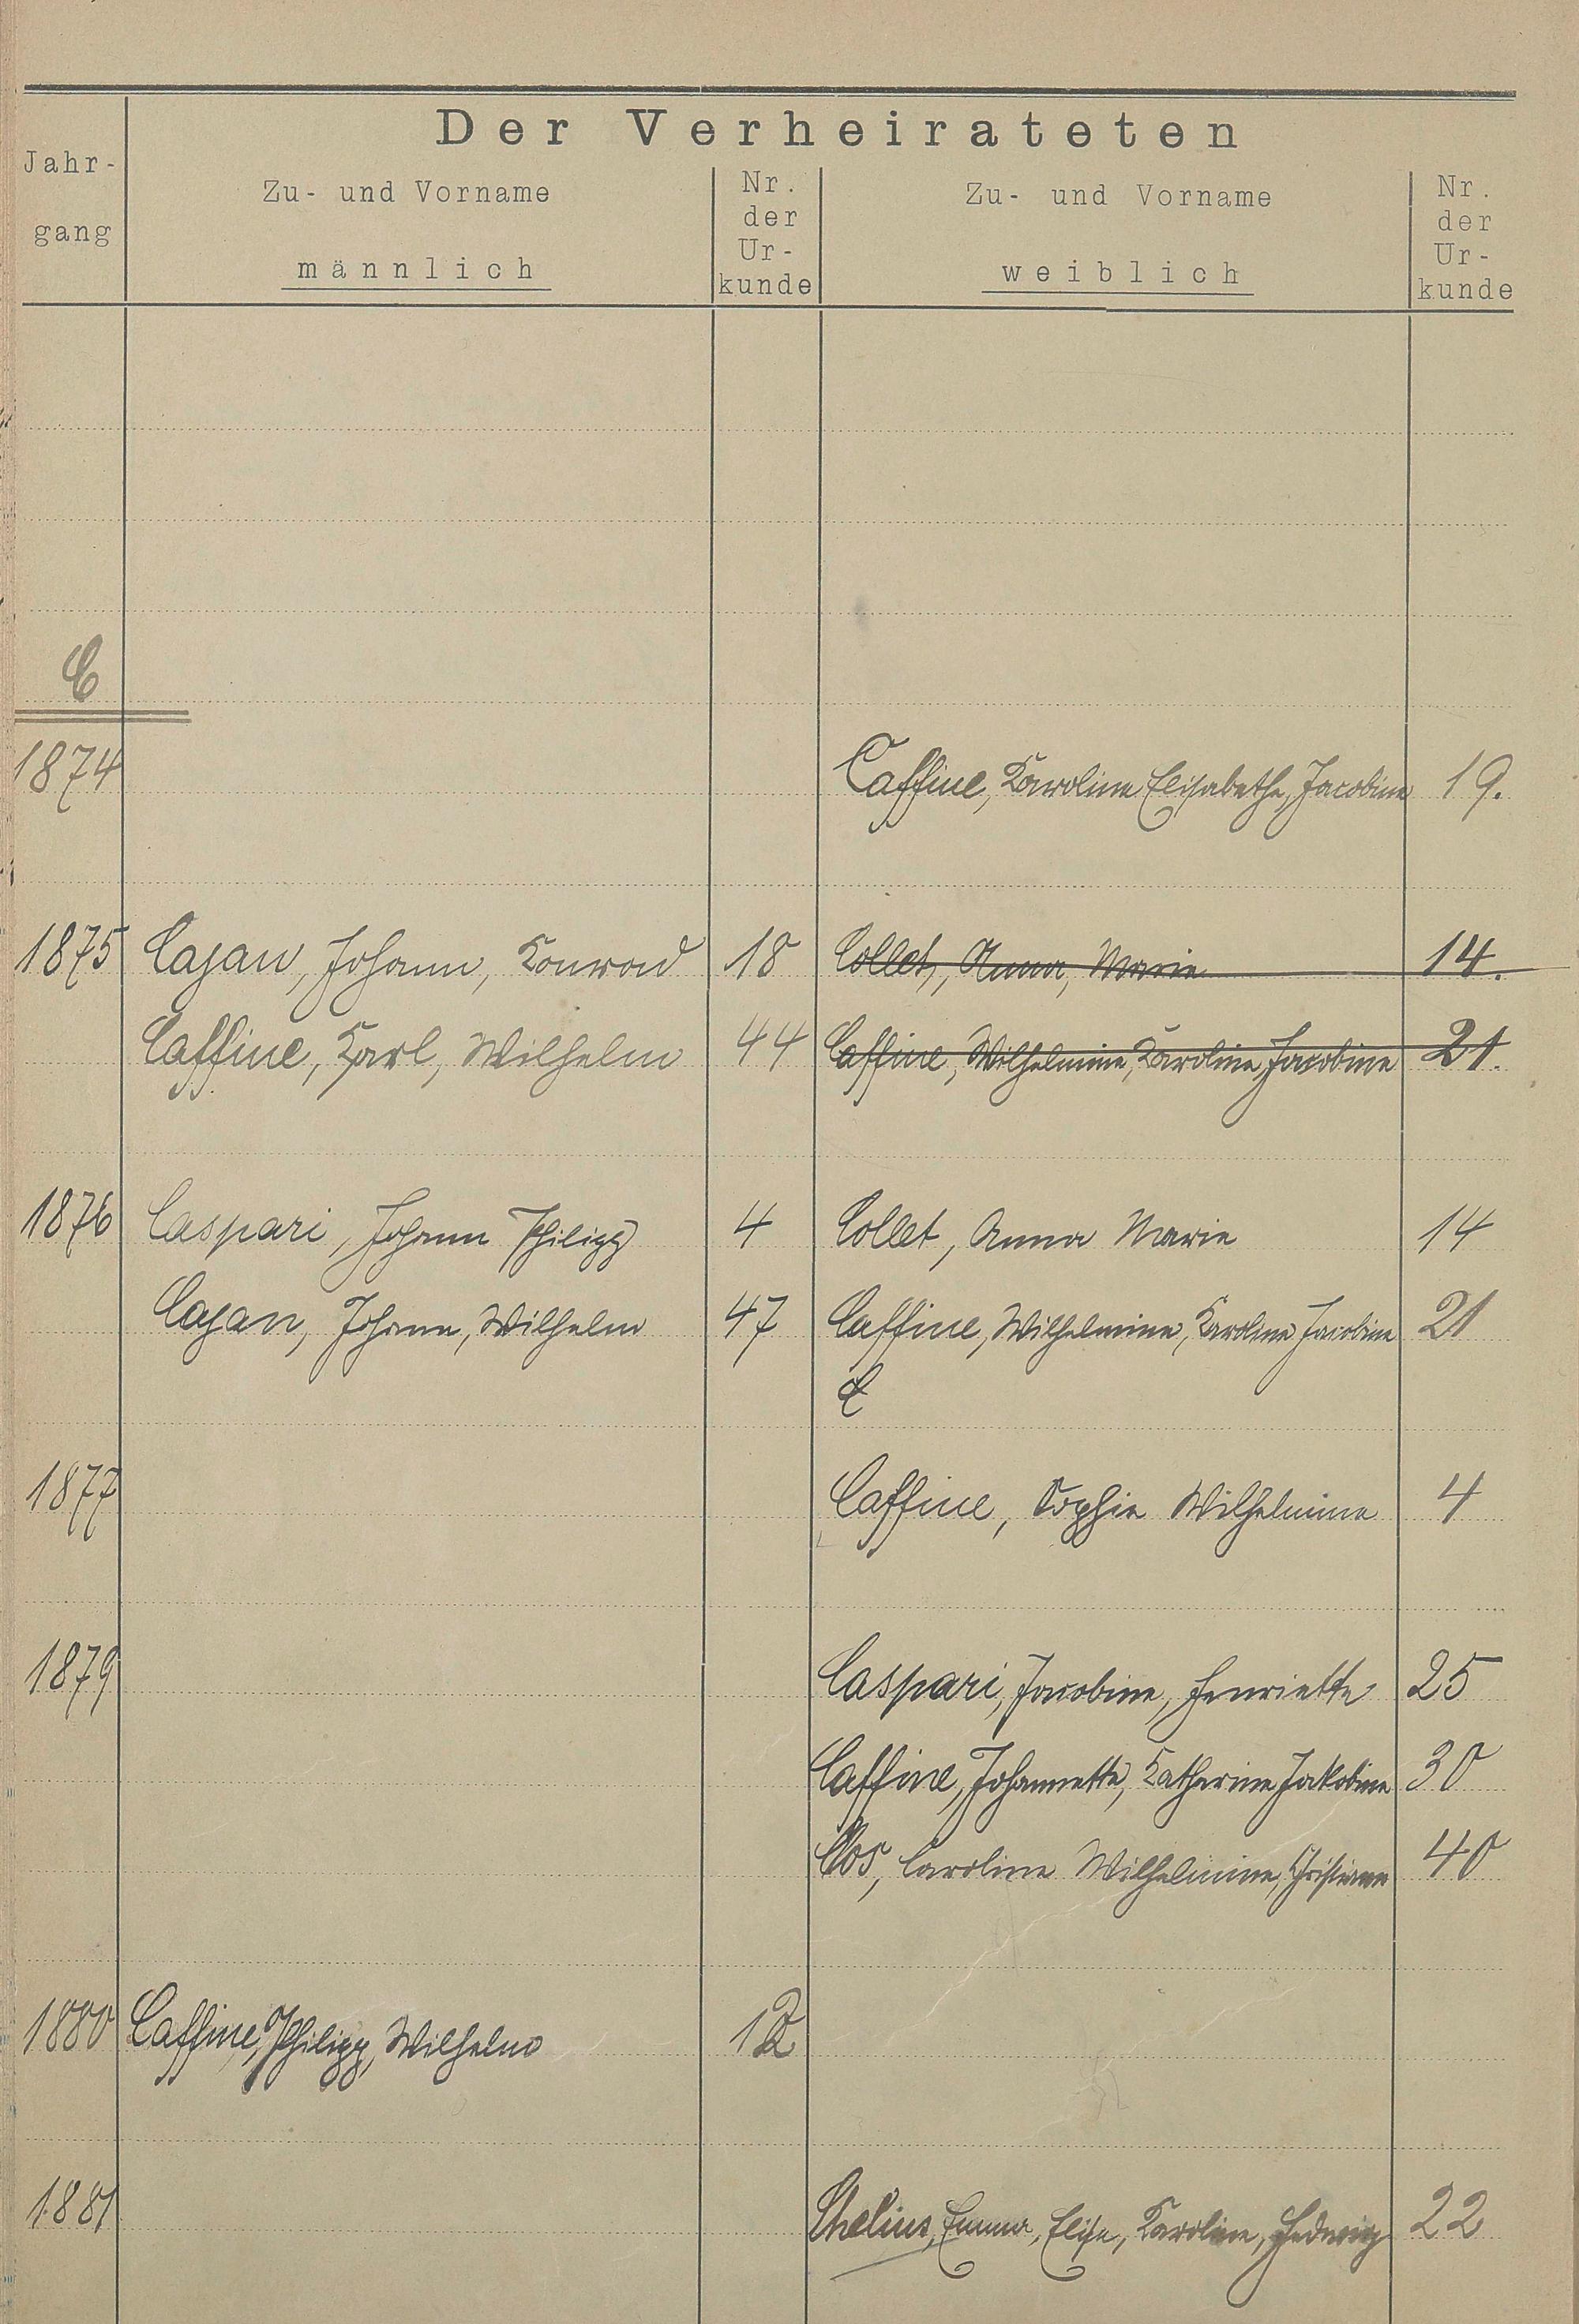 Der Verheirateten
Jahr-
gang
Zu- und Vorname
männlich
Nr.
der
Ur-
kunde
Zu- und Vorname
weiblich
Nr.
der
Ur-
kunde
C
1874 Caffine, Karoline Elisabethe, Jacobine 19.
1875 Cajan, Johann, Konrad 18 Collet, Anna, Marie 14.
Caffine, Karl, Wilhelm 44 Caffine, Wilhelmine, Karoline, Jacobine 21.
1876 Caspari, Johann Philipp 4 Collet, Anna Marie 14
Cajan, Johann, Wilhelm 47 Caffine, Wilhelmine, Karoline Jacobine 21
C
1877 Caffine, Sophie Wilhelmine 4
1879 Caspari, Jacobine, Henriette 25
Caffine, Johannette, Katharine Jakobine 30
Clos, Caroline Wilhelmine, Christiane 40
1880 Caffine, Philipp, Wilhelm 12
1881 Chelius, Emma, Elise, Karoline, Hedwig 22